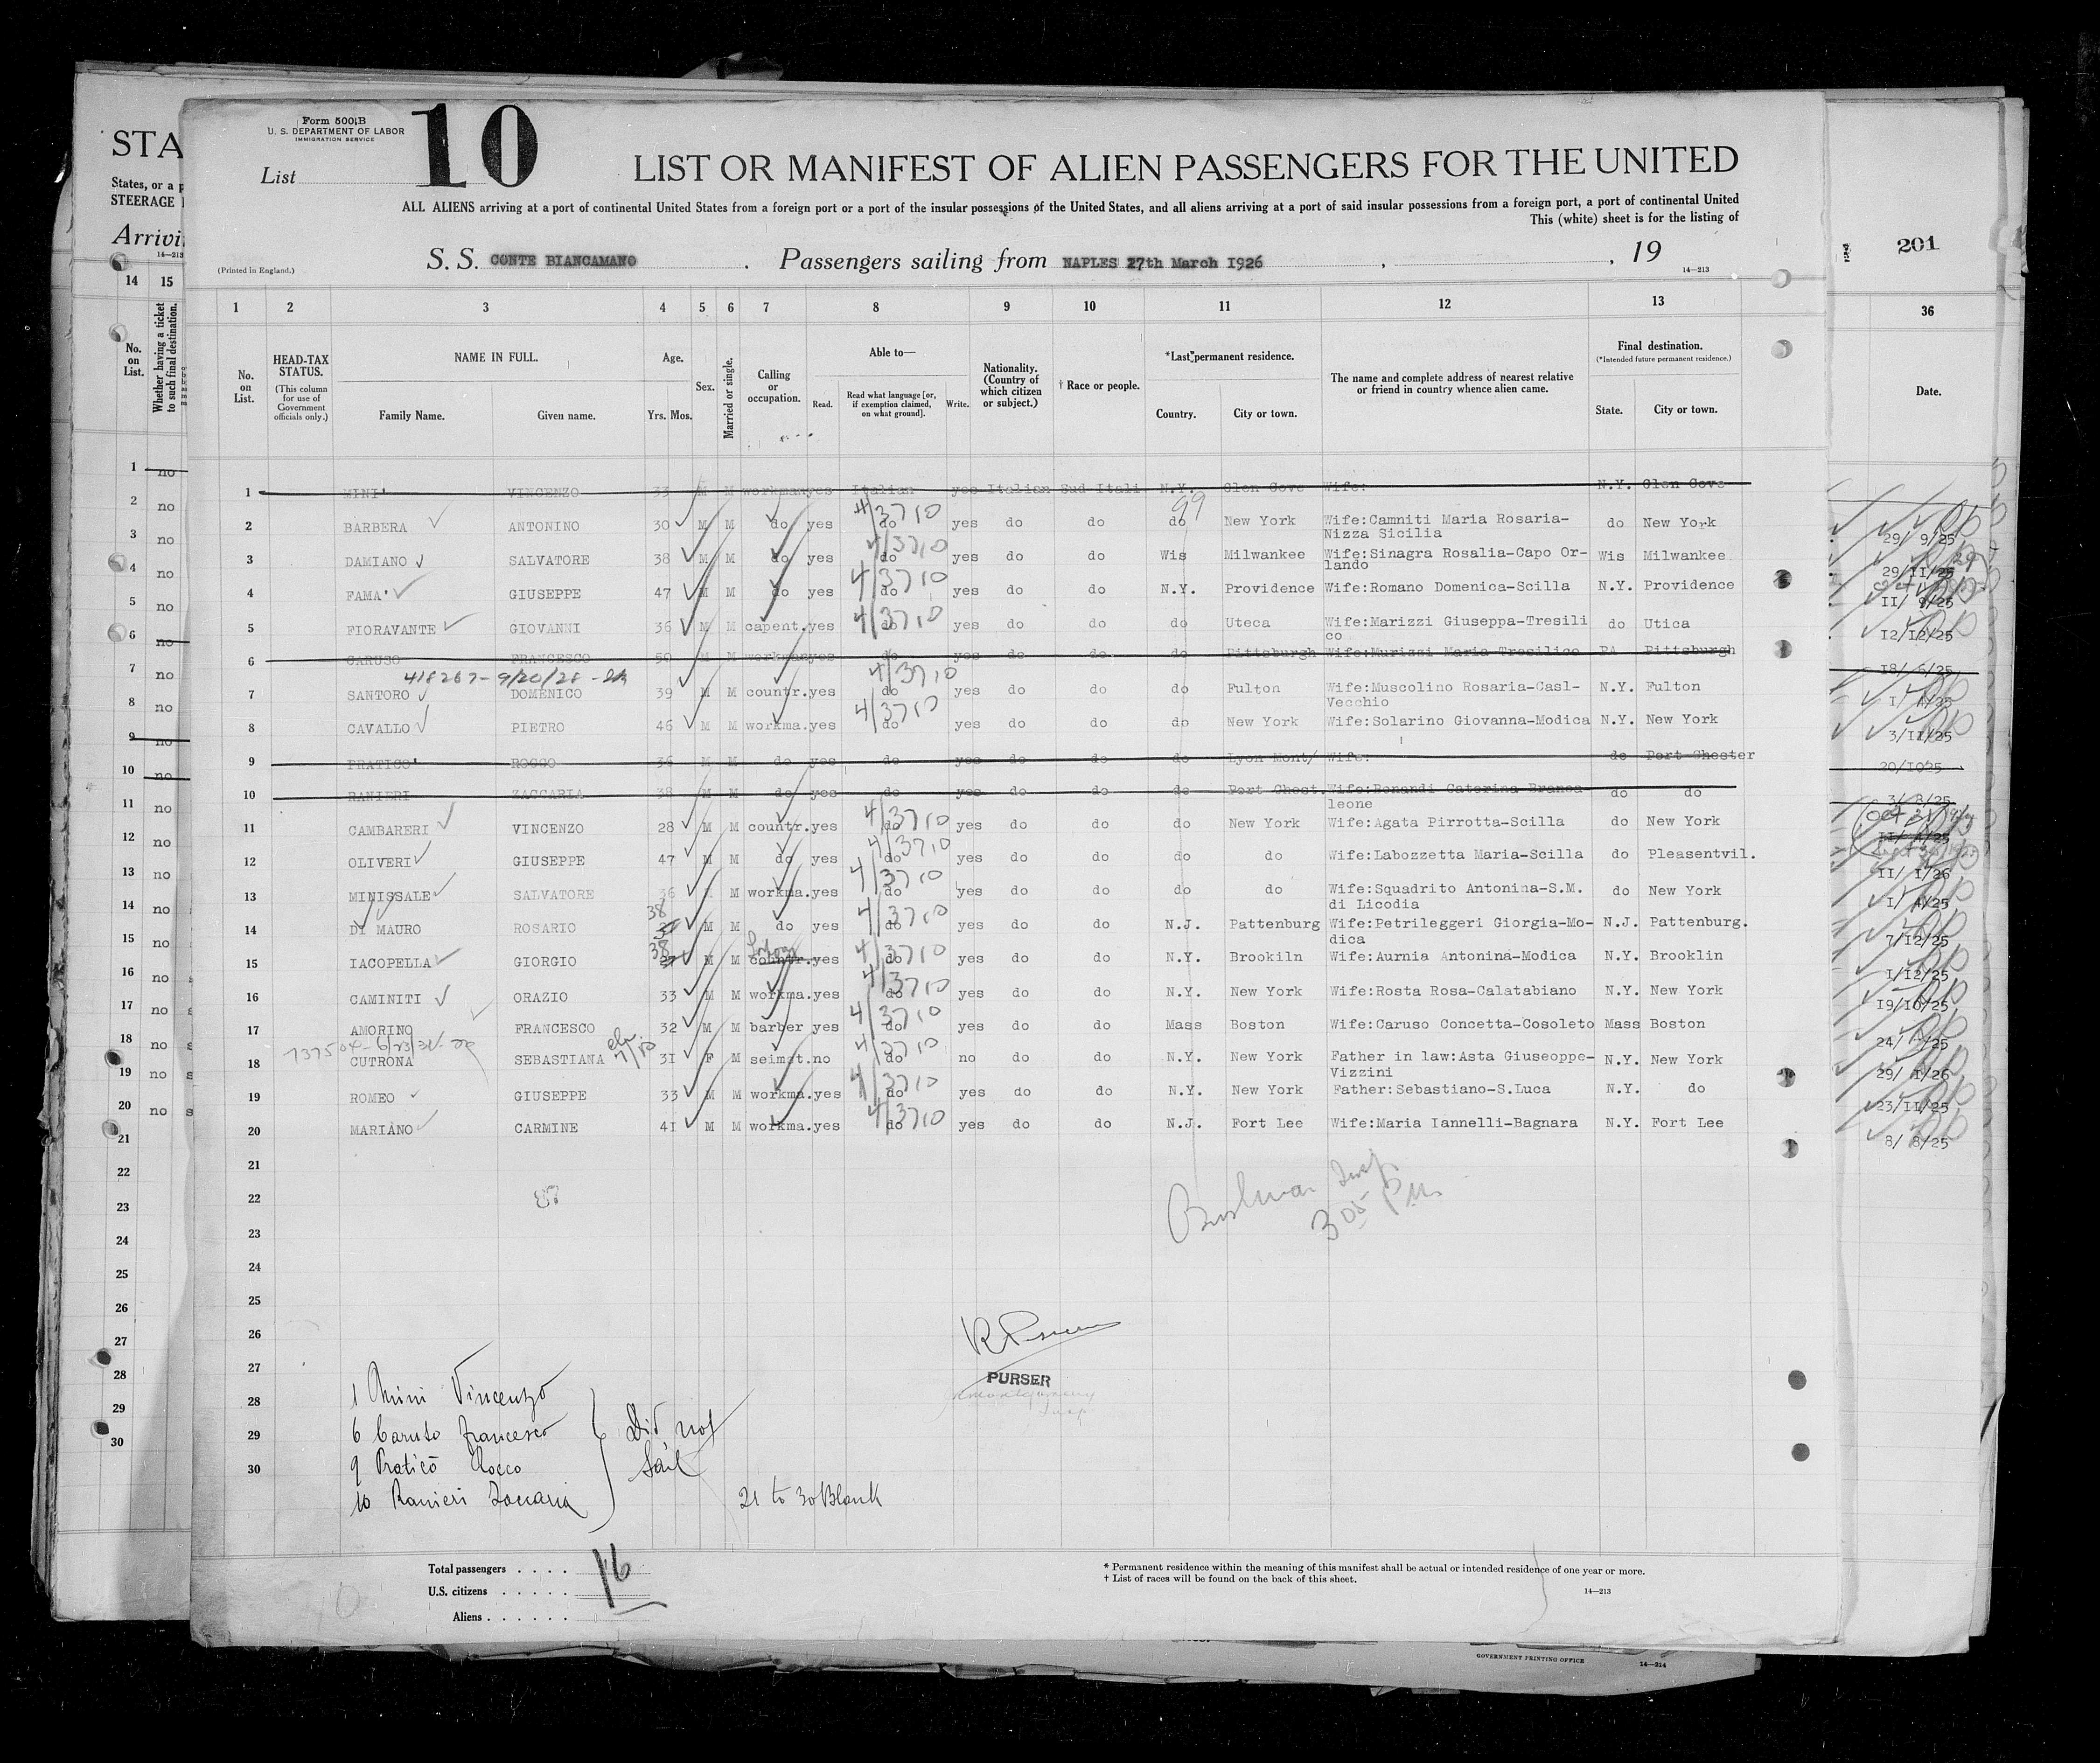 Form 500B
U. S. DEPARTMENT OF LABOR
IMMIGRATION SERVICE
List 10
LIST OR MANIFEST OF ALIEN PASSENGERS FOR THE UNITED
ALL ALIENS arriving at a port of continental United States from a foreign port or a port of the insular possessions of the United States, and all aliens arriving at a port of said insular possessions from a foreign port, a port of continental United
This (white) sheet is for the listing of
(Printed in England.)
S. S. CONTE BIANCAMANO . Passengers sailing from NAPLES 27th March 1926 , , 19
14—213
1 2 3 4 5 6 7 8 9 10 11 12 13
No. on List.
HEAD-TAX STATUS.
(This column for use of Government officials only.)
NAME IN FULL.
Family Name. Given name.
Age.
Yrs. Mos.
Sex.
Married or single.
Calling or occupation.
Able to—
Read. Read what language [or, if exemption claimed, on what ground]. Write.
Nationality. (Country of which citizen or subject.)
† Race or people.
*Last permanent residence.
Country. City or town.
The name and complete address of nearest relative or friend in country whence alien came.
Final destination.
(*Intended future permanent residence.)
State. City or town.
1 MINI' VINCENZO 33 M M workman yes Italian yes Italian Sud Itali N.Y. Glen Cove Wife: N.Y. Glen Cove
99
2 BARBERA ANTONINO 30 M M do yes do 4/3710 yes do do do New York Wife:Camniti Maria Rosaria-Nizza Sicilia do New York
3 DAMIANO SALVATORE 38 M M do yes do 4/3710 yes do do Wis Milwankee Wife:Sinagra Rosalia-Capo Orlando Wis Milwankee
4 FAMA' GIUSEPPE 47 M M do yes do 4/3710 yes do do N.Y. Providence Wife:Romano Domenica-Scilla N.Y. Providence
5 FIORAVANTE GIOVANNI 36 M M capent. yes do 4/3710 yes do do do Uteca Wife:Marizzi Giuseppa-Tresilico do Utica
6 CARUSO FRANCESCO 50 M M workman yes do yes do do do Pittsburgh Wife:Murizzi Maria Tresilico PA Pittsburgh
418267-9/20/28
7 SANTORO DOMENICO 39 M M countr. yes do 4/3710 yes do do do Fulton Wife:Muscolino Rosaria-Casl-Vecchio N.Y. Fulton
8 CAVALLO PIETRO 46 M M workma. yes do 4/3710 yes do do do New York Wife:Solarino Giovanna-Modica N.Y. New York
9 PRATICO' ROCCO 36 M M do yes do yes do do do Lyon Mont/ Wife: do Port Chester
10 RANIERI ZACCARIA 38 M M do yes do yes do do do Port Chest. Wife:Bonandi Caterina Brancaleone do do
11 CAMBARERI VINCENZO 28 M M countr. yes do 4/3710 yes do do do New York Wife:Agata Pirrotta-Scilla do New York
12 OLIVERI GIUSEPPE 47 M M do yes do 4/3710 yes do do do do Wife:Labozzetta Maria-Scilla do Pleasentvil.
13 MINISSALE SALVATORE 36 M M workma. yes do 4/3710 yes do do do do Wife:Squadrito Antonina-S.M. di Licodia do New York
14 DI MAURO ROSARIO 38 M M do yes do 4/3710 yes do do N.J. Pattenburg Wife:Petrileggeri Giorgia-Modica N.J. Pattenburg.
15 IACOPELLA GIORGIO 38 M M countr. yes do 4/3710 yes do do N.Y. Brookiln Wife:Aurnia Antonina-Modica N.Y. Brooklin
16 CAMINITI ORAZIO 33 M M workma. yes do 4/3710 yes do do N.Y. New York Wife:Rosta Rosa-Calatabiano N.Y. New York
17 AMORINO FRANCESCO 32 M M barber yes do 4/3710 yes do do Mass Boston Wife:Caruso Concetta-Cosoleto Mass Boston
18 CUTRONA SEBASTIANA 31 F M seimst. no do 4/3710 no do do N.Y. New York Father in law:Asta Giuseoppe-Vizzini N.Y. New York
19 ROMEO GIUSEPPE 33 M M workma. yes do 4/3710 yes do do N.Y. New York Father:Sebastiano-S.Luca N.Y. do
20 MARIANO CARMINE 41 M M workma. yes do 4/3710 yes do do N.J. Fort Lee Wife:Maria Iannelli-Bagnara N.Y. Fort Lee
21
22
23
24
25
26
27
28
29
30
305 PM
PURSER
1 Mini Vincenzo
6 Caruso Francesco
9 Praticò Rocco
10 Ranieri Zaccaria
Did not Sail
21 to 30 Blank
Total passengers . . . . 16
U.S. citizens . . . . .
Aliens . . . . . .
* Permanent residence within the meaning of this manifest shall be actual or intended residence of one year or more.
† List of races will be found on the back of this sheet.
14—213
STA
States, or a p
STEERAGE
Arrivi
14—213
14 15
No. on List.
Whether having a ticket to such final destination.
1 no
2 no
3 no
4 no
5 no
6 no
7 no
8 no
9 no
10 no
11 no
12 no
13 no
14 no
15 no
16 no
17 no
18 no
19 no
20 no
21
22
23
24
25
26
27
28
29
30
201
36
Date.
29/ 9/25
29/11/25
11/ 9/25
12/12/25
18/ 6/25
1/ 4/25
3/11/25
20/1025
3/ 8/25
11/ 4/25
11/ 1/26
1/ 4/25
7/12/25
1/12/25
19/10/25
24/ 7/25
29/ 1/26
23/11/25
8/ 8/25
GOVERNMENT PRINTING OFFICE
14—214